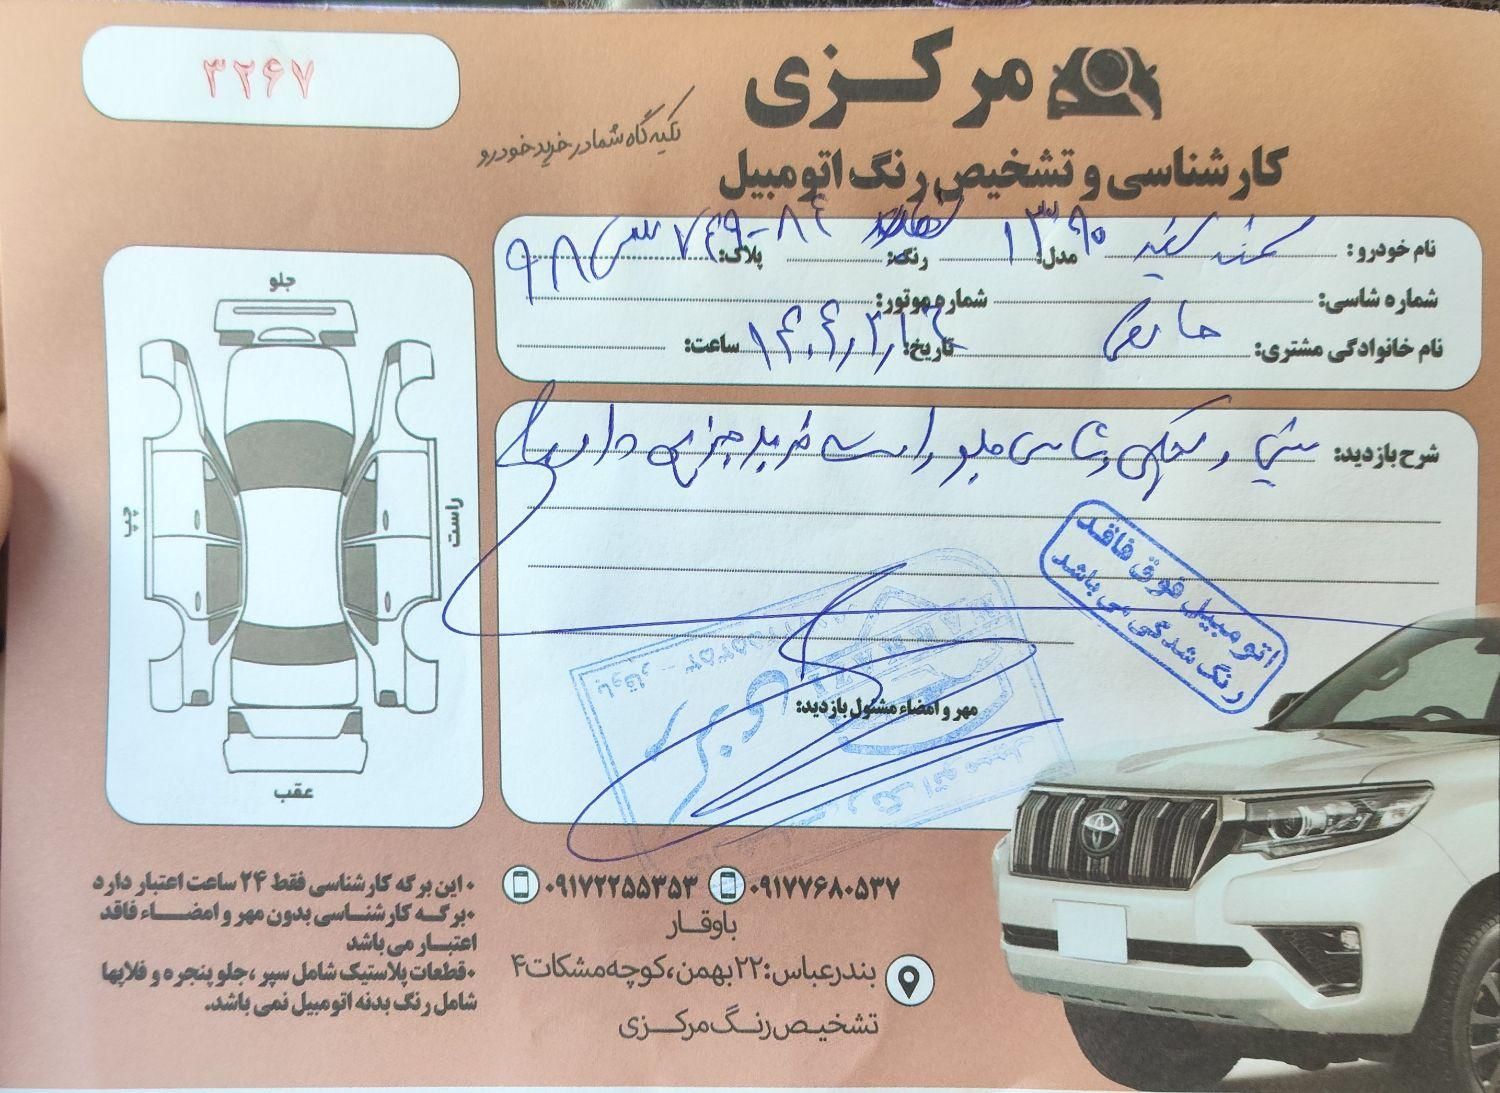 مرکزی
کارشناسی و تشخیص رنگ اتومبیل
تکیه گاه شما در خرید خودرو
۳۲۶۷
نام خودرو: مدل: ۱۳۹۰ رنگ: پلاک: ۹۸
شماره شاسی: شماره موتور:
نام خانوادگی مشتری: تاریخ: ساعت:
شرح بازدید: و شاسی جلو راست ضربه جزیی دارد
اتومبیل فوق فاقد
رنگ شدگی می باشد
مهر و امضاء مسئول بازدید:
جلو
چپ
راست
عقب
• این برگه کارشناسی فقط ۲۴ ساعت اعتبار دارد
• برگه کارشناسی بدون مهر و امضاء فاقد
اعتبار می باشد
• قطعات پلاستیک شامل سپر، جلو پنجره و فلاپها
شامل رنگ بدنه اتومبیل نمی باشد.
۰۹۱۷۷۶۸۰۵۳۷ ۰۹۱۷۲۲۵۵۳۵۳
باوقار
بندرعباس: ۲۲ بهمن، کوچه مشکات ۴
تشخیص رنگ مرکزی